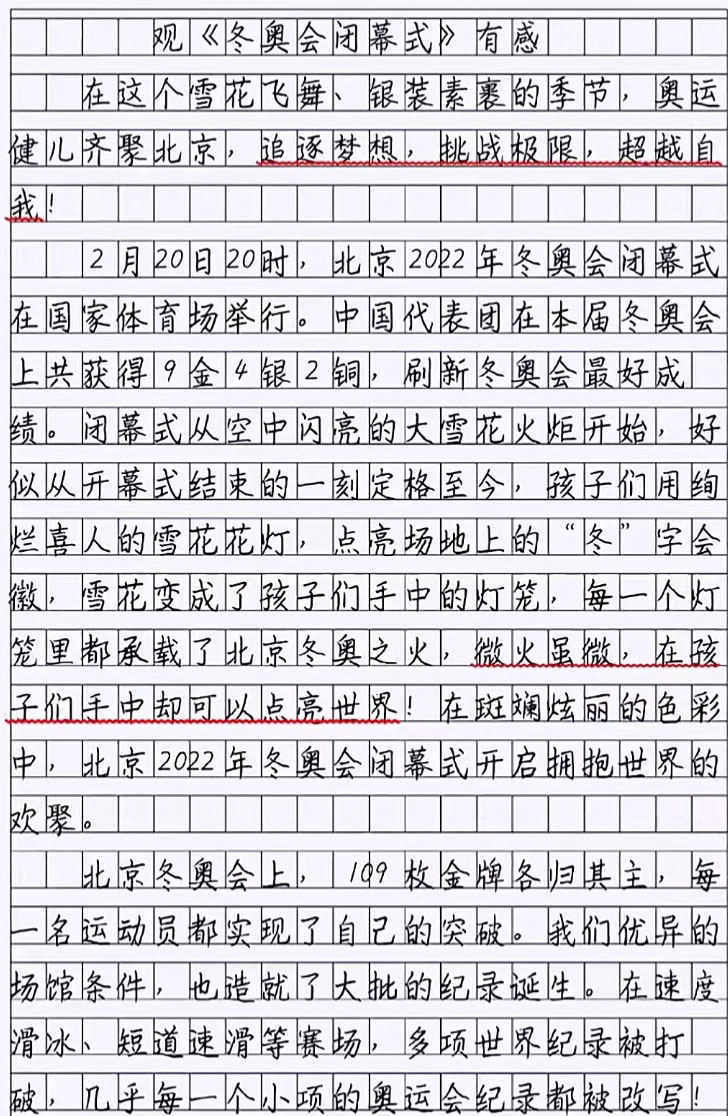 观《冬奥会闭幕式》有感
在这个雪花飞舞、银装素裹的季节，奥运
健儿齐聚北京，追逐梦想，挑战极限，超越自
我！
2月20日20时，北京2022年冬奥会闭幕式
在国家体育场举行。中国代表团在本届冬奥会
上共获得9金4银2铜，刷新冬奥会最好成
绩。闭幕式从空中闪亮的大雪花火炬开始，好
似从开幕式结束的一刻定格至今，孩子们用绚
烂喜人的雪花花灯，点亮场地上的“冬”字会
徽，雪花变成了孩子们手中的灯笼，每一个灯
笼里都承载了北京冬奥之火，微火虽微，在孩
子们手中却可以点亮世界！在斑斓炫丽的色彩
中，北京2022年冬奥会闭幕式开启拥抱世界的
欢聚。
北京冬奥会上，109枚金牌各归其主，每
一名运动员都实现了自己的突破。我们优异的
场馆条件，也造就了大批的纪录诞生。在速度
滑冰、短道速滑等赛场，多项世界纪录被打
破，几乎每一个小项的奥运会纪录都被改写！